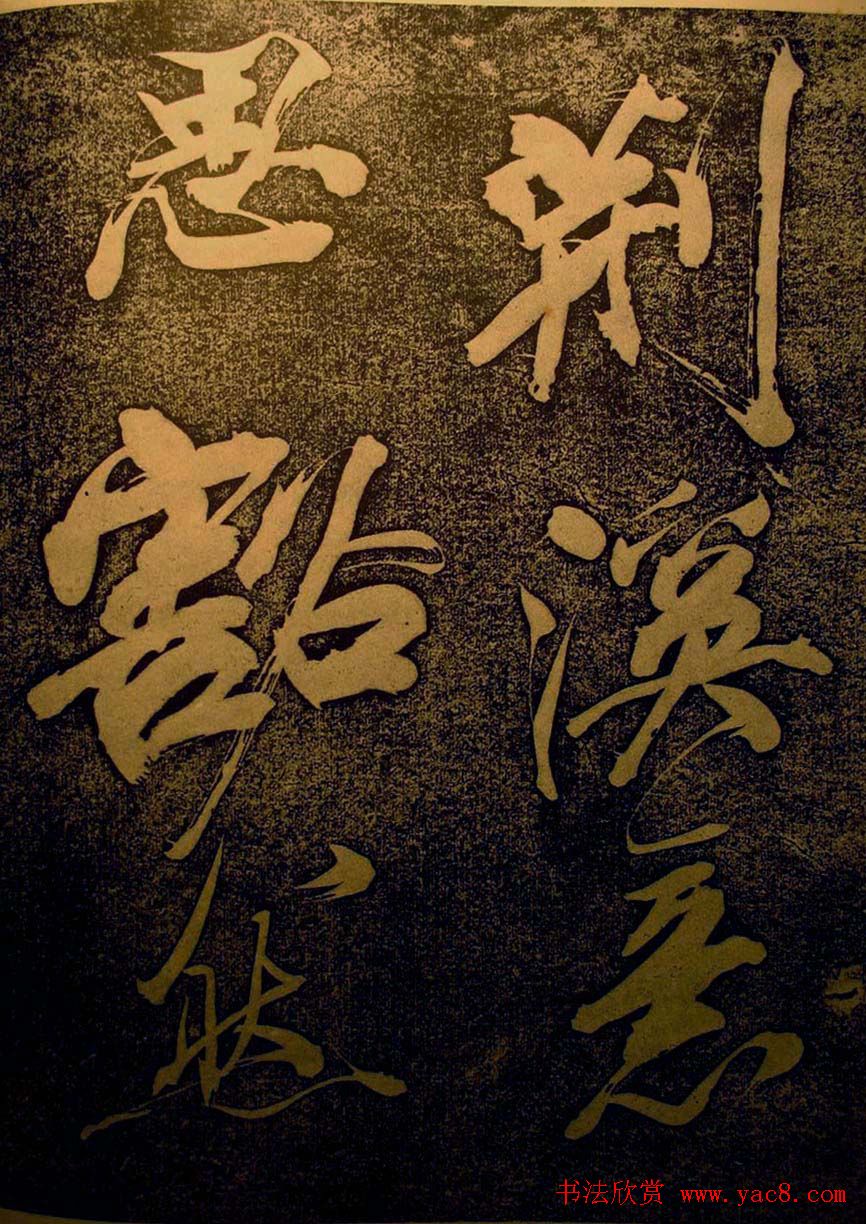 荆溪意
思豁然
书法欣赏 www.yac8.com